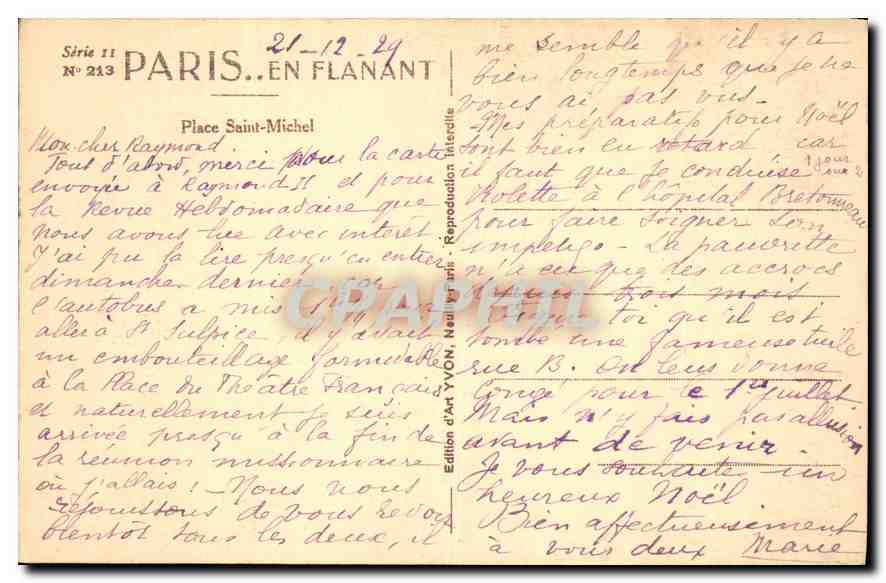 21-12-29
Série 11
N° 213 PARIS.. EN FLANANT
Place Saint-Michel
Mon cher Raymond.
Tout d'abord, merci pour la carte
envoyée à Raymond H et pour
la Revue Hebdomadaire que
nous avons lue avec intérêt
J'ai pu la lire presqu'en entier
dimanche dernier car
l'autobus a mis
aller à St Sulpice, il y avait
un embouteillage formidable
à la Place du Théâtre Français
et naturellement je suis
arrivée presqu'à la fin de
la réunion missionnaire
où j'allais! - Nous nous
réjouissons de vous revoir
bientôt tous les deux, il
Edition d'Art YVON, Neuilly-Paris - Reproduction Interdite
me semble qu'il y a
bien longtemps que je ne
vous ai pas vus-
Mes préparatifs pour Noël
sont bien en retard car
il faut que je conduise 1 jour
sur 2
Violette à l'hôpital Bretonneau
pour faire soigner son
impétigo - La pauvrette
n'a eu que des accrocs
depuis trois mois
toi qu'il est
tombé une fameuse tuile
rue B. On leur donne
congé pour le 1er juillet
Mais n'y fais pas allusion
avant de venir
Je vous souhaite un
heureux Noël
Bien affectueusement
à vous deux Marie
CPAPHIL